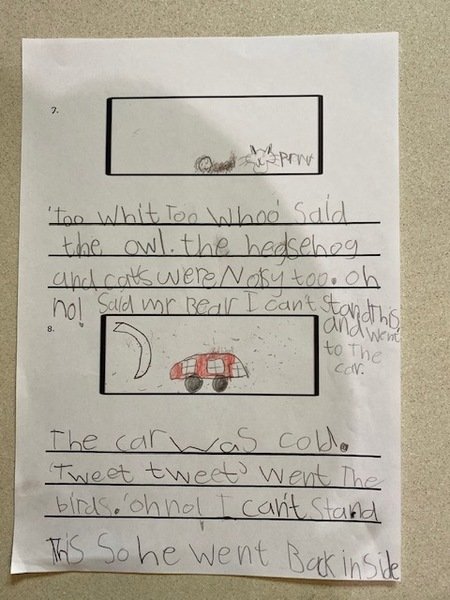 7.
prrr
'Too Whit Too Whoo' Said
the owl. the hegsehog
and cats were Nosy too. oh
no! Said mr Bear I can't Stand This
and went
to The
car.
8.
The car was cold.
'Tweet tweet' went The
birds. 'oh no! I can't Stand
This So he went Back inside